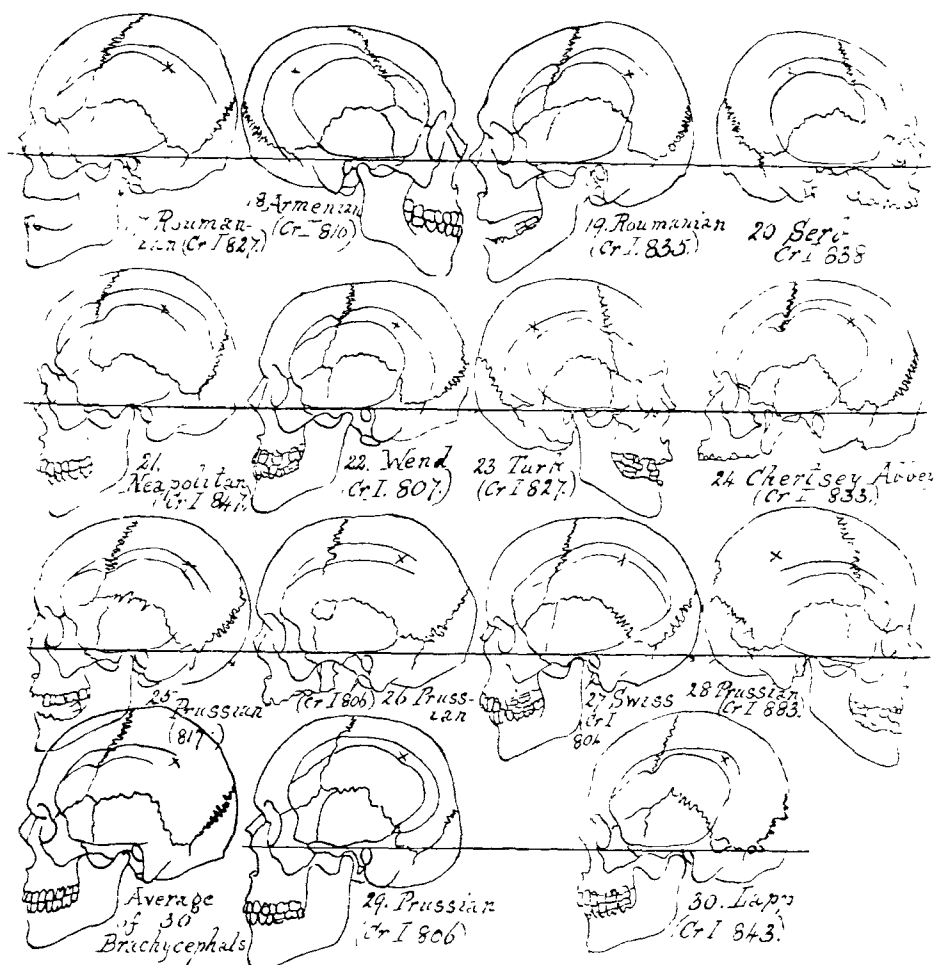 Rouman-
ian (Cr I 827.)
18. Armenian
(Cr I 810)
19. Roumanian
(Cr I. 835.)
20 Serb
Cr I 838
21.
Neapolitan
(Cr I 847.)
22. Wend
Cr I. 807.)
23 Turk
(Cr I 827.)
24 Chertsey Abbey
(Cr I 833.)
25 Prussian
(817.)
(Cr I 806) 26 Pruss-
ian
27 Swiss
Cr I
806
28 Prussian
(Cr I 883.
Average
of 30
Brachycephals
29. Prussian
(Cr I 806)
30. Lapp
(Cr I 843.)